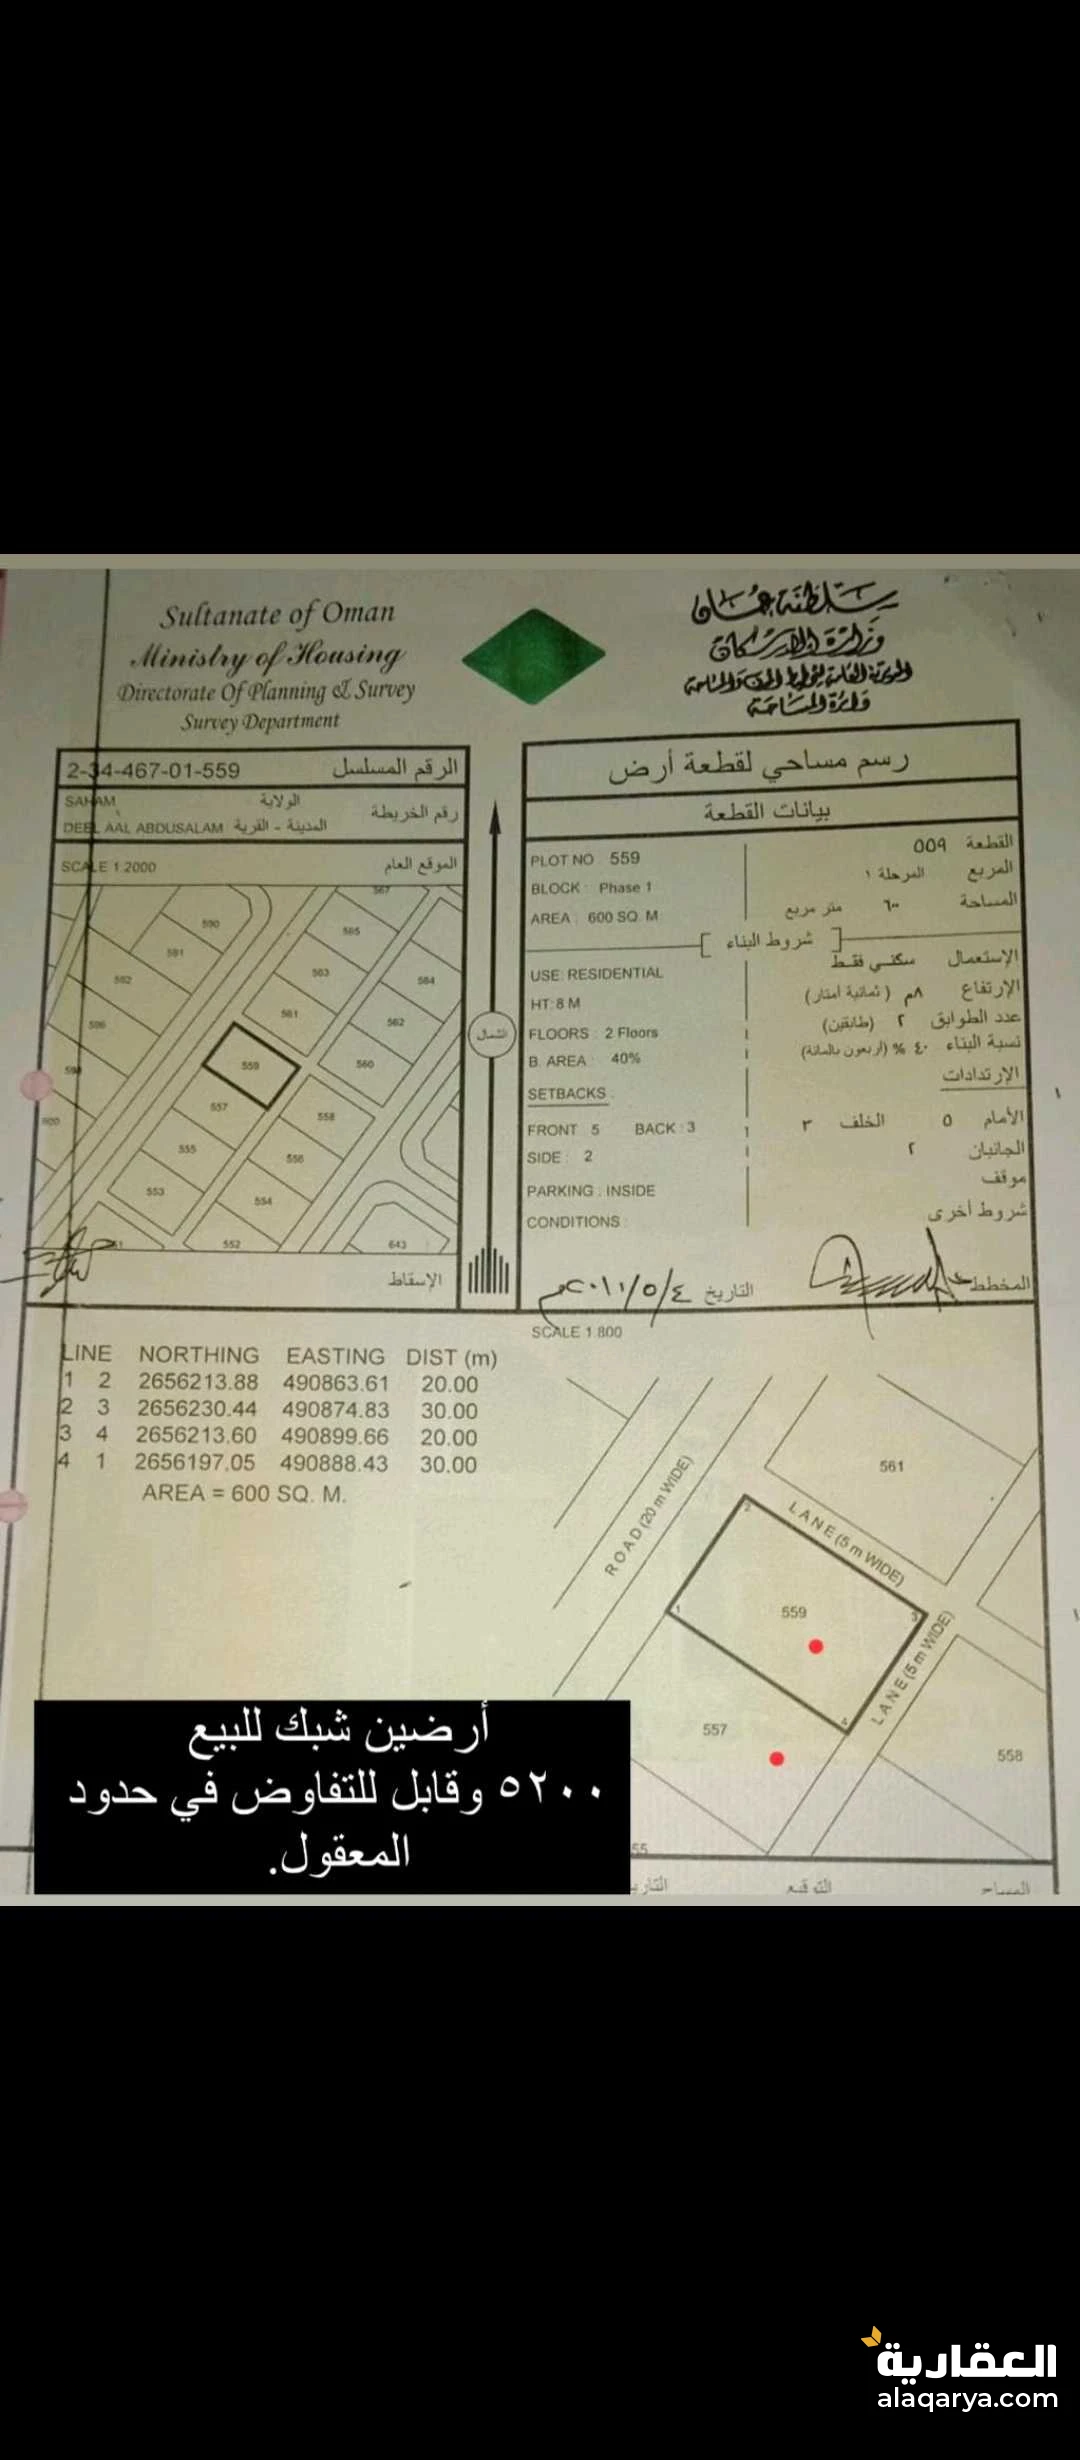 Sultanate of Oman
Ministry of Housing
Directorate Of Planning & Survey
Survey Department
سلطنة عمان
وزارة الإسكان
المديرية العامة للتخطيط والمساحة
دائرة المساحة
2-34-467-01-559 الرقم المسلسل
SAHAM الولاية
رقم الخريطة
DEEL AAL ABDUSALAM المدينة - القرية
SCALE 1:2000 الموقع العام
567
590
565
591
563
592
564
561
562
596
559
560
598
557
558
600
555
556
553
554
552
643
الإسقاط
الشمال
رسم مساحي لقطعة أرض
بيانات القطعة
PLOT NO 559
القطعة ٥٥٩
BLOCK : Phase 1
المربع المرحلة ١
AREA : 600 SQ. M
المساحة ٦٠٠ متر مربع
شروط البناء
USE: RESIDENTIAL
الإستعمال سكني فقط
HT: 8 M
الإرتفاع ٨م (ثمانية أمتار)
FLOORS : 2 Floors
عدد الطوابق ٢ (طابقين)
B. AREA : 40%
نسبة البناء ٤٠ % (أربعون بالمائة)
SETBACKS :
الإرتدادات
FRONT 5 BACK : 3
الأمام ٥ الخلف ٣
SIDE : 2
الجانبان ٢
PARKING : INSIDE
موقف
CONDITIONS :
شروط أخرى
المخطط
التاريخ ٢٠١١/٥/٤م
SCALE 1:800
LINE NORTHING EASTING DIST (m)
1 2 2656213.88 490863.61 20.00
2 3 2656230.44 490874.83 30.00
3 4 2656213.60 490899.66 20.00
4 1 2656197.05 490888.43 30.00
AREA = 600 SQ. M.
561
ROAD (20 m WIDE)
LANE (5 m WIDE)
2
1
559
3
LANE (5 m WIDE)
4
557
558
المساح التوقيع
أرضين شبك للبيع
٥٢٠٠ وقابل للتفاوض في حدود
المعقول.
العقارية
alaqarya.com